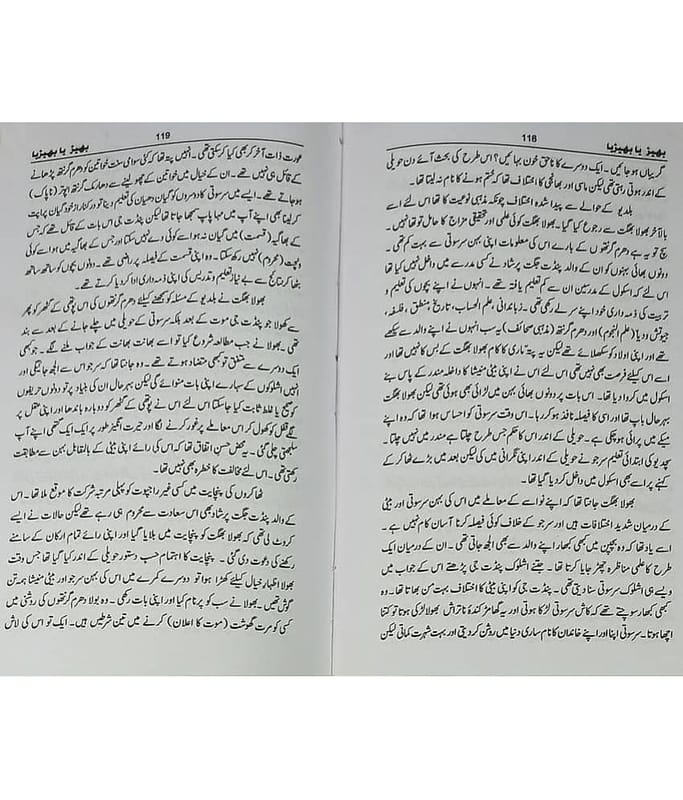 بھیڑ یا بھیڑیا
118
گریباں ہو جائیں۔ ایک دوسرے کا ناحق خون بہائیں؟ اس طرح کی بحث آئے دن حویلی
کے اندر ہوتی رہتی تھی لیکن ماسی اور بھانجی کا اختلاف تھا کہ ختم ہونے کا نام نہ لیتا تھا۔
بلدیو کے حوالے سے پیدا شدہ اختلاف چونکہ مذہبی نوعیت کا تھا اس لئے اسے
بالآخر بھولا بھگت سے رجوع کیا گیا۔ بھولا بھگت کوئی علمی اور تحقیقی مزاج کا حامل تو تھا نہیں۔
سچ تو یہ ہے دھرم گرنتھوں کے بارے اس کی معلومات اپنی بہن سرسوتی سے بہت کم تھی۔
دونوں بھائی بہنوں کو ان کے والد پنڈت جگت پرشاد نے کسی مدرسے میں داخل نہیں کیا تھا
اس لئے کہ اسکول کے مدرسین ان سے کم تعلیم یافتہ تھے۔ انہوں نے اپنے بچوں کی تعلیم و
تربیت کی ذمہ داری خود اپنے سر لے رکھی تھی۔ زباندانی، علم الحساب، تاریخ، منطق، فلسفہ،
جیوتش ودیا (علم النجوم) اور دھرم گرنتھ (مذہبی صحائف) یہ سب انہوں نے اپنے والد سے سیکھے
تھے اور اپنی اولاد کو سکھلائے تھے لیکن یہ پتہ ماری کا کام بھولا بھگت کے بس کا نہیں تھا اور
اسے اس کیلئے فرصت بھی نہیں تھی اس لئے اس نے اپنی بیٹی منیشا کا داخلہ مندر کے پاس بنے
اسکول میں کروا دیا تھا۔ اس بات پر دونوں بھائی بہن میں لڑائی بھی ہوئی تھی لیکن بھولا بھگت
بہرحال باپ تھا اور اسی کا فیصلہ نافذ ہو کر رہا۔ اس وقت سرسوتی کو احساس ہوا تھا کہ وہ اپنے
میکے میں پرائی ہو چکی ہے۔ حویلی کے اندر اس کا حکم جس طرح چلتا ہے مندر میں نہیں چلتا۔
سچدیو کی ابتدائی تعلیم سرجو نے حویلی کے اندر اپنی نگرانی میں کی تھی لیکن بعد میں بڑے ٹھاکر کے
کہنے پر اسے بھی اسکول میں داخل کر دیا گیا تھا۔
بھولا بھگت جانتا تھا کہ اپنے نواسے کے معاملے میں اس کی بہن سرسوتی اور بیٹی
کے درمیان شدید اختلافات ہیں اور سرجو کے خلاف کوئی فیصلہ کرنا آسان کام نہیں ہے۔
اسے یاد تھا کہ وہ بچپن میں کبھی کبھار اپنے والد سے بھی الجھ جاتی تھی۔ ان کے درمیان ایک
طرح کا علمی مناظرہ چھڑ جایا کرتا تھا۔ جتنے اشلوک پنڈت جی پڑھتے اس کے جواب میں
ویسے ہی اشلوک سرسوتی سنا دیتی تھی۔ پنڈت جی کو اپنی بیٹی کا اختلاف بہت من بھاتا تھا۔ وہ
کبھی کبھار سوچتے تھے کہ کاش سرسوتی لڑکا ہوتی اور یہ گھامڑ کندۂ ناتراش بھولا لڑکی ہوتا تو کتنا
اچھا ہوتا۔ سرسوتی اپنا اور اپنے خاندان کا نام ساری دنیا میں روشن کر دیتی اور بہت شہرت کماتی لیکن
119
بھیڑ یا بھیڑیا
عورت ذات آخر کر بھی کیا کر سکتی تھی۔ انہیں پتہ تھا کہ کئی سوامی سنت خواتین کو دھرم گرنتھ پڑھانے
کے قائل ہی نہیں تھے۔ ان کے خیال میں خواتین کے چھو لینے سے دھارمک گرنتھ اپوتر (ناپاک)
ہو جاتے تھے۔ ایسے میں سرسوتی کا دوسروں کو گیان دھیان کی تعلیم دینا تو درکنار از خود گیان پراپت
کر لینا بھی اپنے آپ میں مہا پاپ سمجھا جاتا تھا لیکن پنڈت جی اس بات کے قائل تھے کہ جس
کے بھاگیہ (قسمت) میں گیان نہ ہو اسے کوئی دے نہیں سکتا اور جس کے بھاگیہ میں ہو اسے کوئی
ونچت (محروم) نہیں رکھ سکتا۔ وہ اپنی قسمت کے فیصلہ پر راضی تھے۔ دونوں بچوں کو ساتھ ساتھ
بٹھا کر نتائج سے بے نیاز تعلیم و تدریس کی اپنی ذمہ داری ادا کر دیا کرتے تھے۔
بھولا بھگت نے بلدیو کے مسئلہ کو سمجھنے کیلئے دھرم گرنتھوں کی اس پوتھی کے گٹھر کو پھر
سے کھولا جو پنڈت جی موت کے بعد بلکہ سرسوتی کے حویلی میں چلے جانے کے بعد سے بند
تھی۔ بھولا نے جب مطالعہ شروع کیا تو اسے بھانت بھانت کے جواب ملنے لگے۔ جو کبھی
ایک دوسرے سے متفق تو کبھی متضاد ہوتے تھے۔ وہ جانتا تھا کہ سرجو اس سے الجھ جائیگی اور
انہیں اشلوکوں کے سہارے اپنی بات منوائے گی لیکن بہرحال ان کی بنیاد پر تو دونوں حریفوں
کو صحیح یا غلط ثابت کیا جا سکتا اس لئے اس نے پوتھی کے گٹھر کو دوبارہ باندھا اور اپنی عقل پر
لگے قفل کو کھول کر اس معاملے پر غور کرنے لگا اور حیرت انگیز طور پر ایک ایک گتھی اپنے آپ
سلجھتی چلی گئی۔ یہ محض حسن اتفاق تھا کہ اس کی رائے اپنی بیٹی کے بالمقابل بہن سے مطابقت
رکھتی تھی۔ اس لئے مخالفت کا خطرہ بھی نہیں تھا۔
ٹھاکروں کی پنچایت میں کسی غیر راجپوت کو پہلی مرتبہ شرکت کا موقع ملا تھا۔ اس
کے والد پنڈت جگت پرشاد بھی اس سعادت سے محروم ہی رہے تھے لیکن حالات نے ایسے
کروٹ لی تھی کہ بھولا بھگت کو پنچایت میں بلایا گیا اور اپنی رائے تمام ارکان کے سامنے
رکھنے کی دعوت دی گئی۔ پنچایت کا اہتمام حسب دستور حویلی کے اندر کیا گیا تھا جس وقت
بھولا اظہار خیال کیلئے کھڑا ہوا تو دوسرے کمرے میں اس کی بہن سرجو اور بیٹی منیشا ہمہ تن
گوش تھیں۔ بھولا نے سب کو پرنام کیا اور اپنی بات رکھی۔ وہ بولا دھرم گرنتھوں کی روشنی میں
کسی کو مرت گھوشت (موت کا اعلان) کرنے میں تین شرطیں ہیں۔ ایک تو اس کی لاش